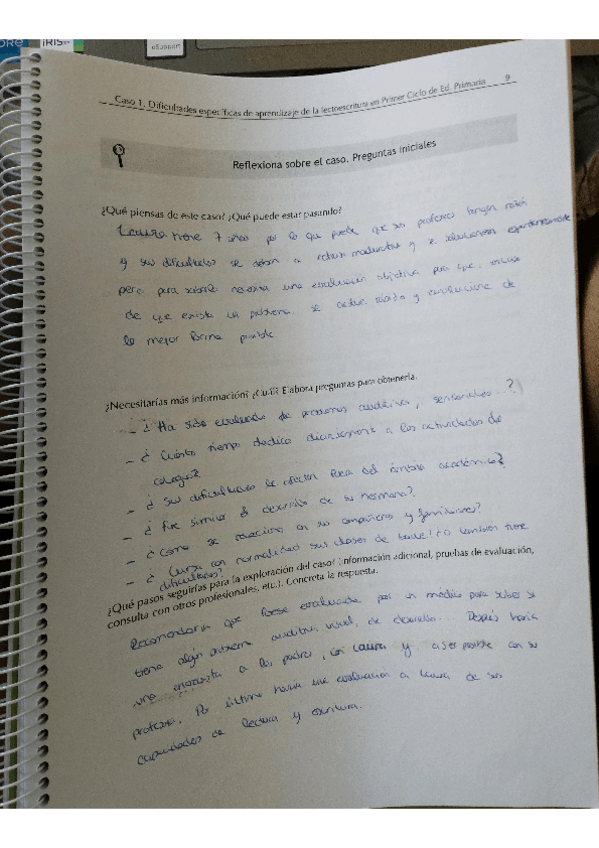 ORE
iRIS
eSupport
Caso 1. Dificultades específicas de aprendizaje de la lectoescritura en Primer Ciclo de Ed. Primaria 9
Reflexiona sobre el caso. Preguntas iniciales
¿Qué piensas de este caso? ¿Qué puede estar pasando?
Laura tiene 7 años por lo que puede que sus profesores tengan razón
y sus dificultades se deban a retraso madurativo y se solucionen espontáneamente
pero para saberlo necesita una evaluación objetiva para que, en caso
de que exista un problema, se actúe rápido y evolucione de
la mejor forma posible.
¿Necesitarías más información? ¿Cuál? Elabora preguntas para obtenerla.
- ¿Ha sido evaluada de problemas auditivos, sensoriales...?
- ¿Cuánto tiempo dedica diariamente a las actividades del
colegio?
- ¿Sus dificultades le afectan fuera del ámbito académico?
- ¿Fue similar el desarrollo de su hermana?
- ¿Cómo se relaciona con sus compañeros y familiares?
- ¿Cursa con normalidad sus clases de baile? ¿O también tiene
dificultades?
¿Qué pasos seguirías para la exploración del caso? (información adicional, pruebas de evaluación,
consulta con otros profesionales, etc.). Concreta la respuesta.
Recomendaría que fuese evaluada por un médico para saber si
tiene algún problema auditivo, visual, de desarrollo... Después haría
una entrevista a los padres, con Laura y a ser posible con su
profesora. Por último haría una evaluación a Laura de sus
capacidades de lectura y escritura.